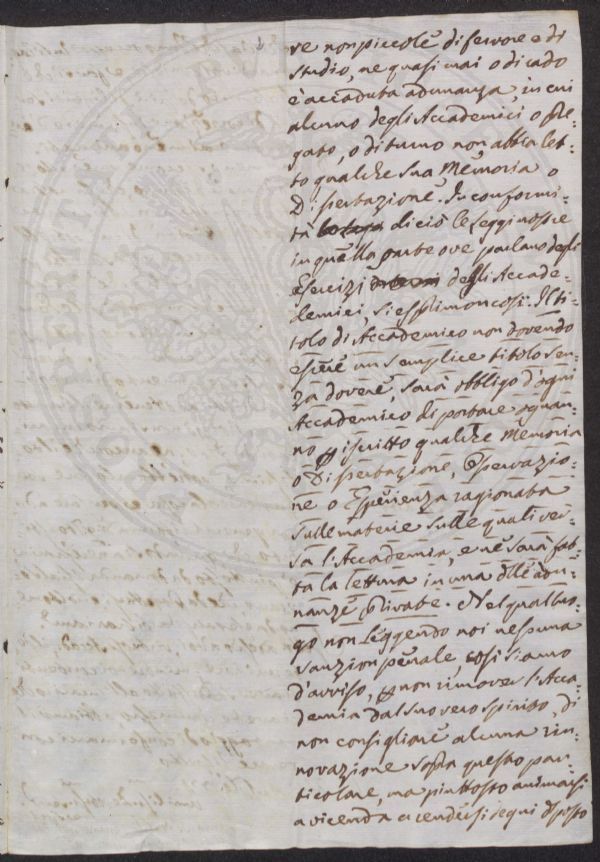 re non piccole di fervore e di
studio, ne quasi mai o di cado
è accaduta adunanza, in cui
alcuno degli Accademici o pre=
gato, o di turno non abbia let=
to qualche sua Memoria o
Dissertazione. In conformi=
tà di ciò le Leggi nostre
in quella parte ove parlano degli
Esercizi degli Accade=
demici, si esprimon così: Il ti=
tolo di Accademico non dovendo
essere un semplice titolo sen=
za dovere, sarà obbligo d'ogni
Accademico di portare ogn'an=
no iscritto qualche Memoria
o Dissertazione, Osservazio=
ne o Esperienza ragionata
sulle materie sulle quali ver=
sa l'Accademia, e ne sarà fat=
ta la lettura in una delle adu=
nanze private. Nel qual luo=
go non leggendo noi nessuna
sanzion penale così siamo
d'avviso, p non rimover l'Acca=
demia dal suo vero spirito, di
non consigliare alcuna rin=
novazione sopra questo par=
ticolare, ma piuttosto animarsi
a vicenda